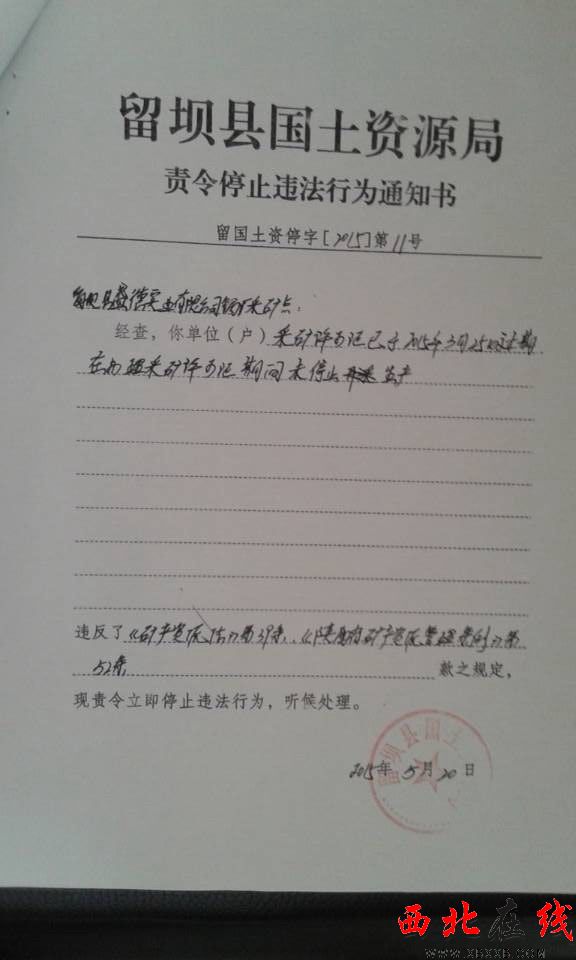 留坝县国土资源局
责令停止违法行为通知书
留国土资停字[2015]第11号
留坝县 德实业有限公司 采矿点：
经查，你单位（户）采矿许可证已于2015年3月25日过期
在办理采矿许可证期间未停止 生产
违反了《矿产资源法》第39条、《陕西省矿产资源管理条例》第
52条 款之规定，
现责令立即停止违法行为，听候处理。
留坝县国土
2015年5月20日
西北在线
WWW.XBXXB.COM